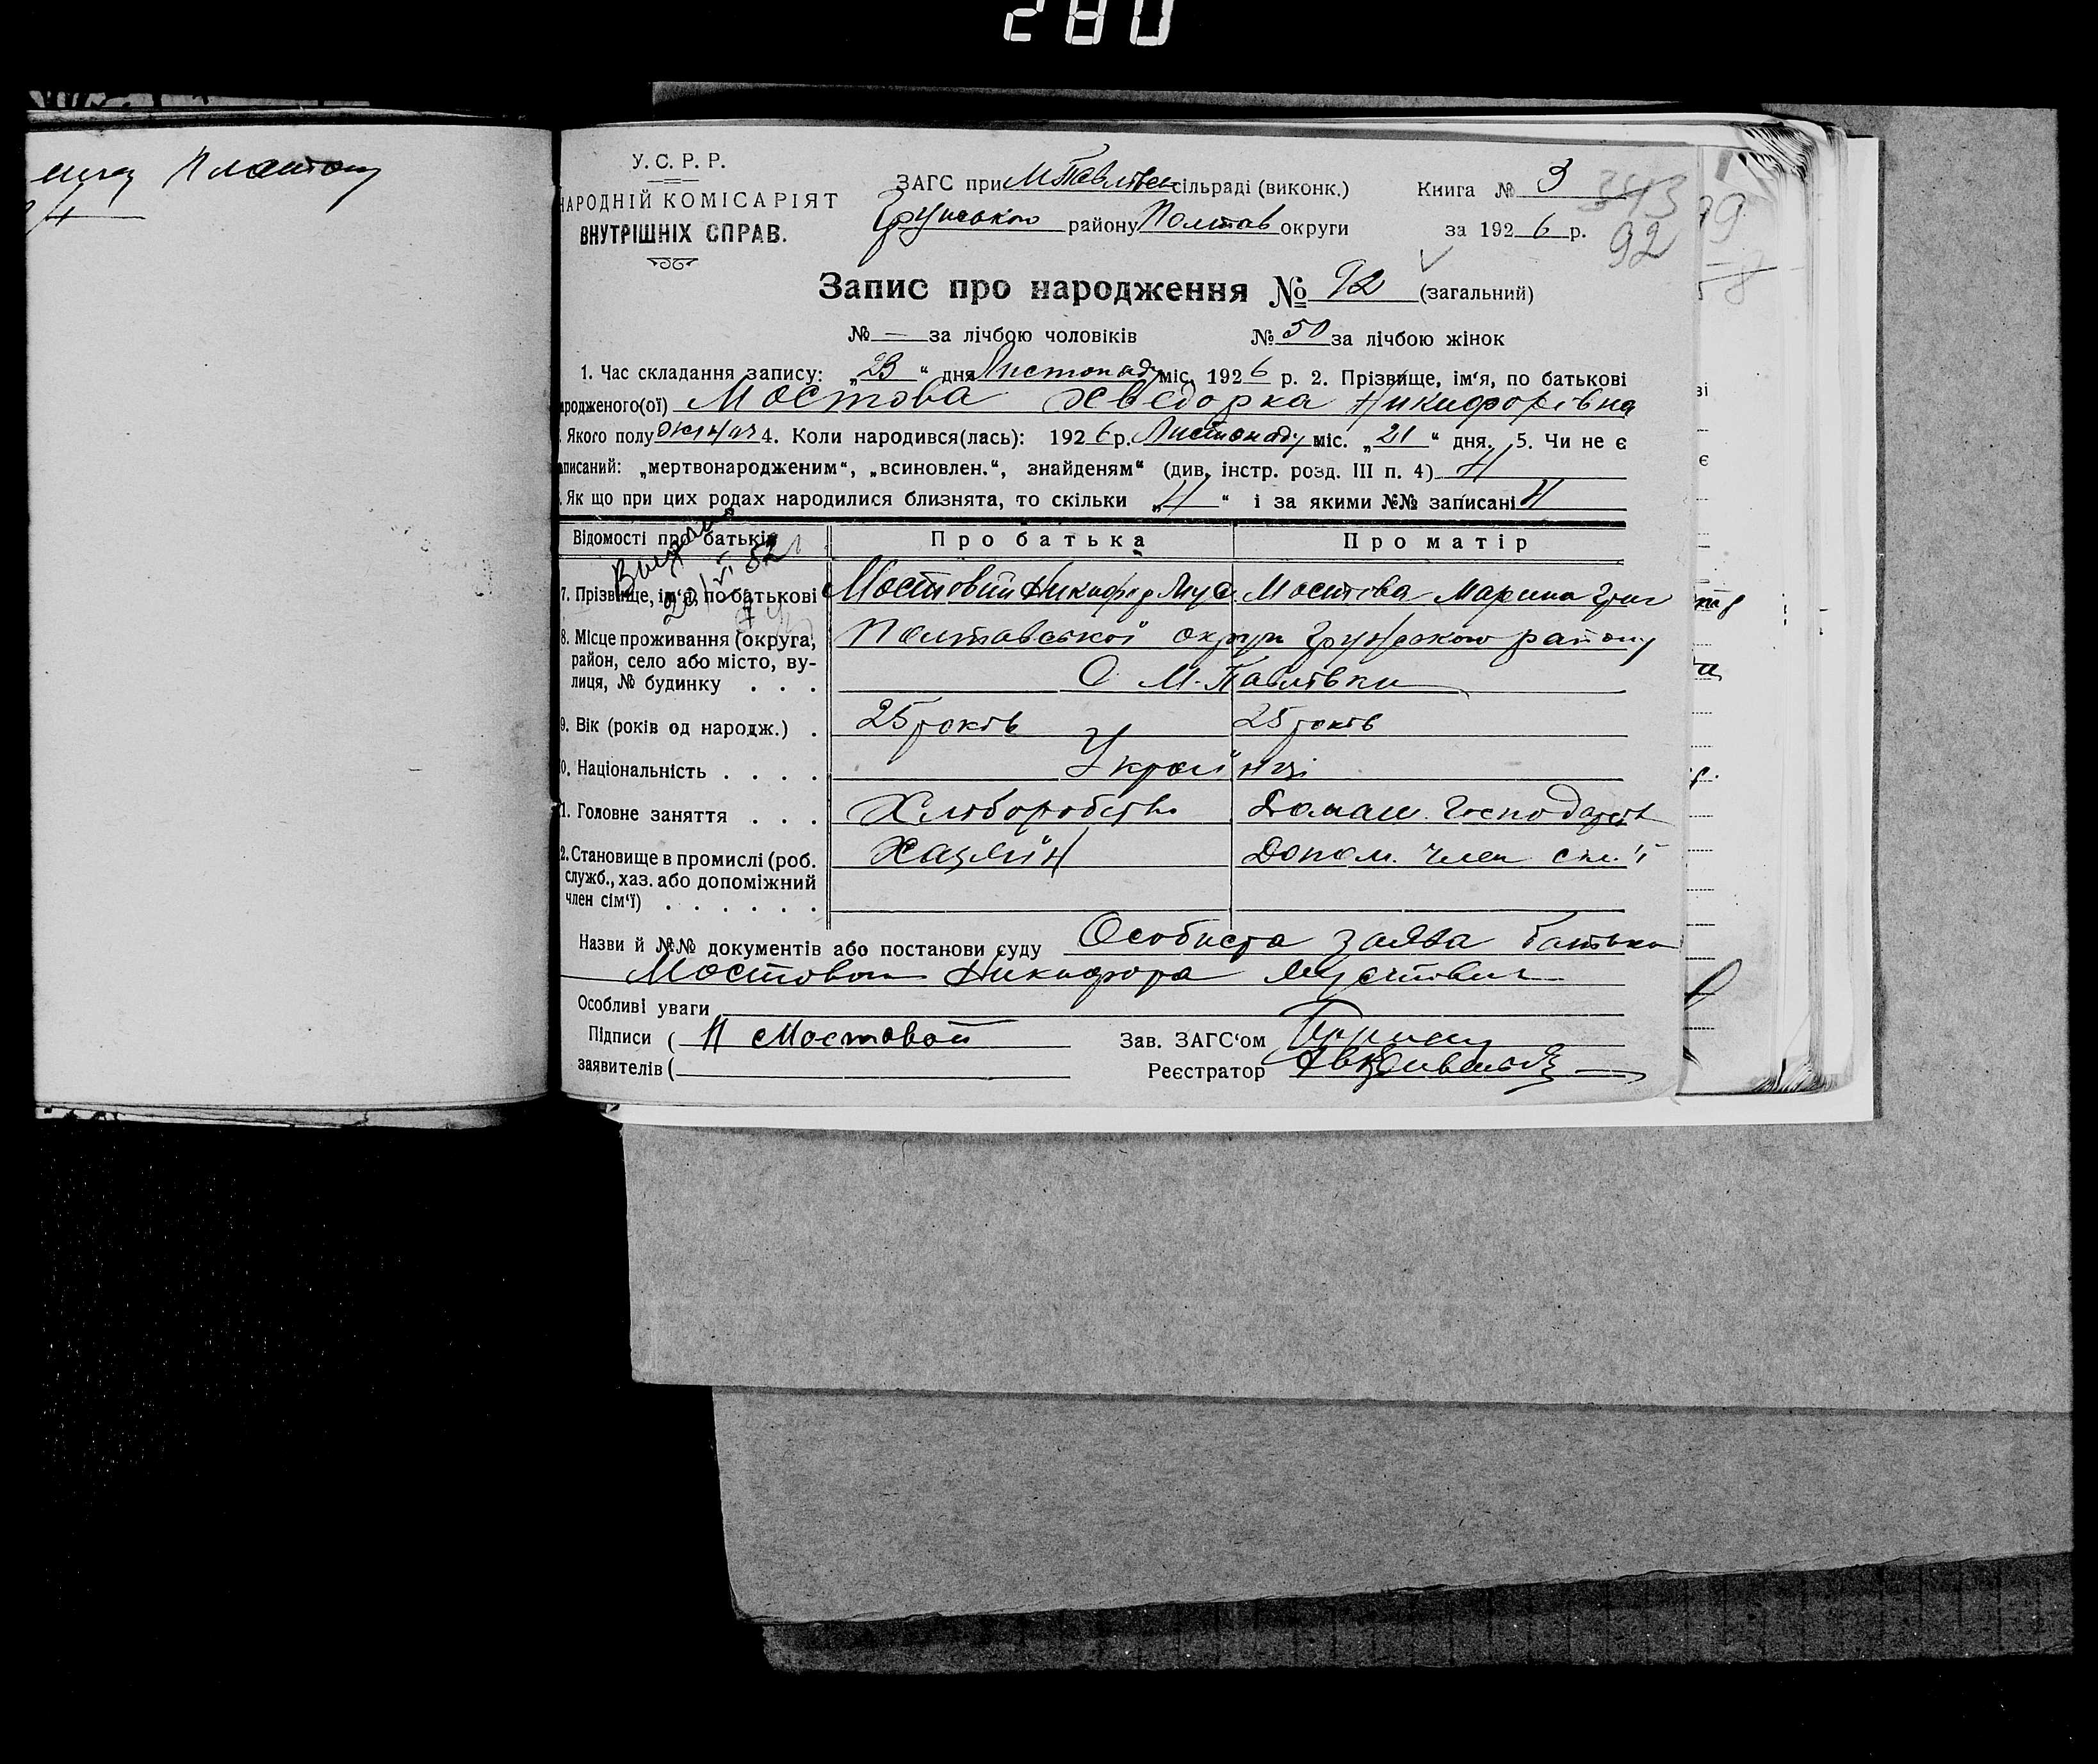 280
Платон
У. С. Р. Р.
НАРОДНІЙ КОМІСАРІЯТ
ВНУТРІШНІХ СПРАВ.
ЗАГС при М Павлівск сільраді (виконк.)
Грунського району Полтав округи
Книга № 3
343
за 1926 р.
92
Запис про народження № 92 (загальний)
№ — за лічбою чоловіків № 50 за лічбою жінок
1. Час складання запису: „23“ дня Листопаду міс. 1926 р. 2. Прізвище, ім‘я, по батькові
ародженого(ої) Мостова Хведорка Никифорівна
Якого полу жіноч 4. Коли народився(лась): 1926 р. Листопаду міс. „21“ дня. 5. Чи не є
аписаний: „мертвонародженим“, „всиновлен.“, знайденям“ (див. інстр. розд. III п. 4) Н
Як що при цих родах народилися близнята, то скільки „Н“ і за якими №№ записані Н
Відомості про батьків Про батька Про матір
7. Прізвище, ім‘я, по батькові Мостовий Никифор Мус. Мостова Марина Григ
8. Місце проживання (округа, Полтавської округи Грунського району
район, село або місто, ву-
лиця, № будинку . . . С М-Павлівки
9. Вік (років од народж.) . 25 років 25 років
0. Національність . . . . Українці
1. Головне заняття . . . Хліборобство Домаш. Господарств
2. Становище в промислі (роб. Хазяїн Допом. член сім'ї
служб., хаз. або допоміжний
член сім‘ї) . . . . . .
Назви й №№ документів або постанови суду Особиста заява батька
Мостового Никифора Мусійович
Особливі уваги
Підписи ( Н Мостовой Зав. ЗАГС‘ом
заявителів ( Реєстратор